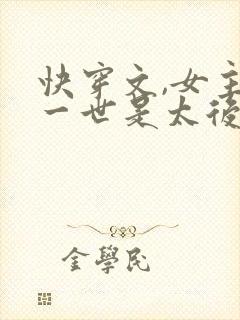 快穿文,女主
一世是太後
金學民